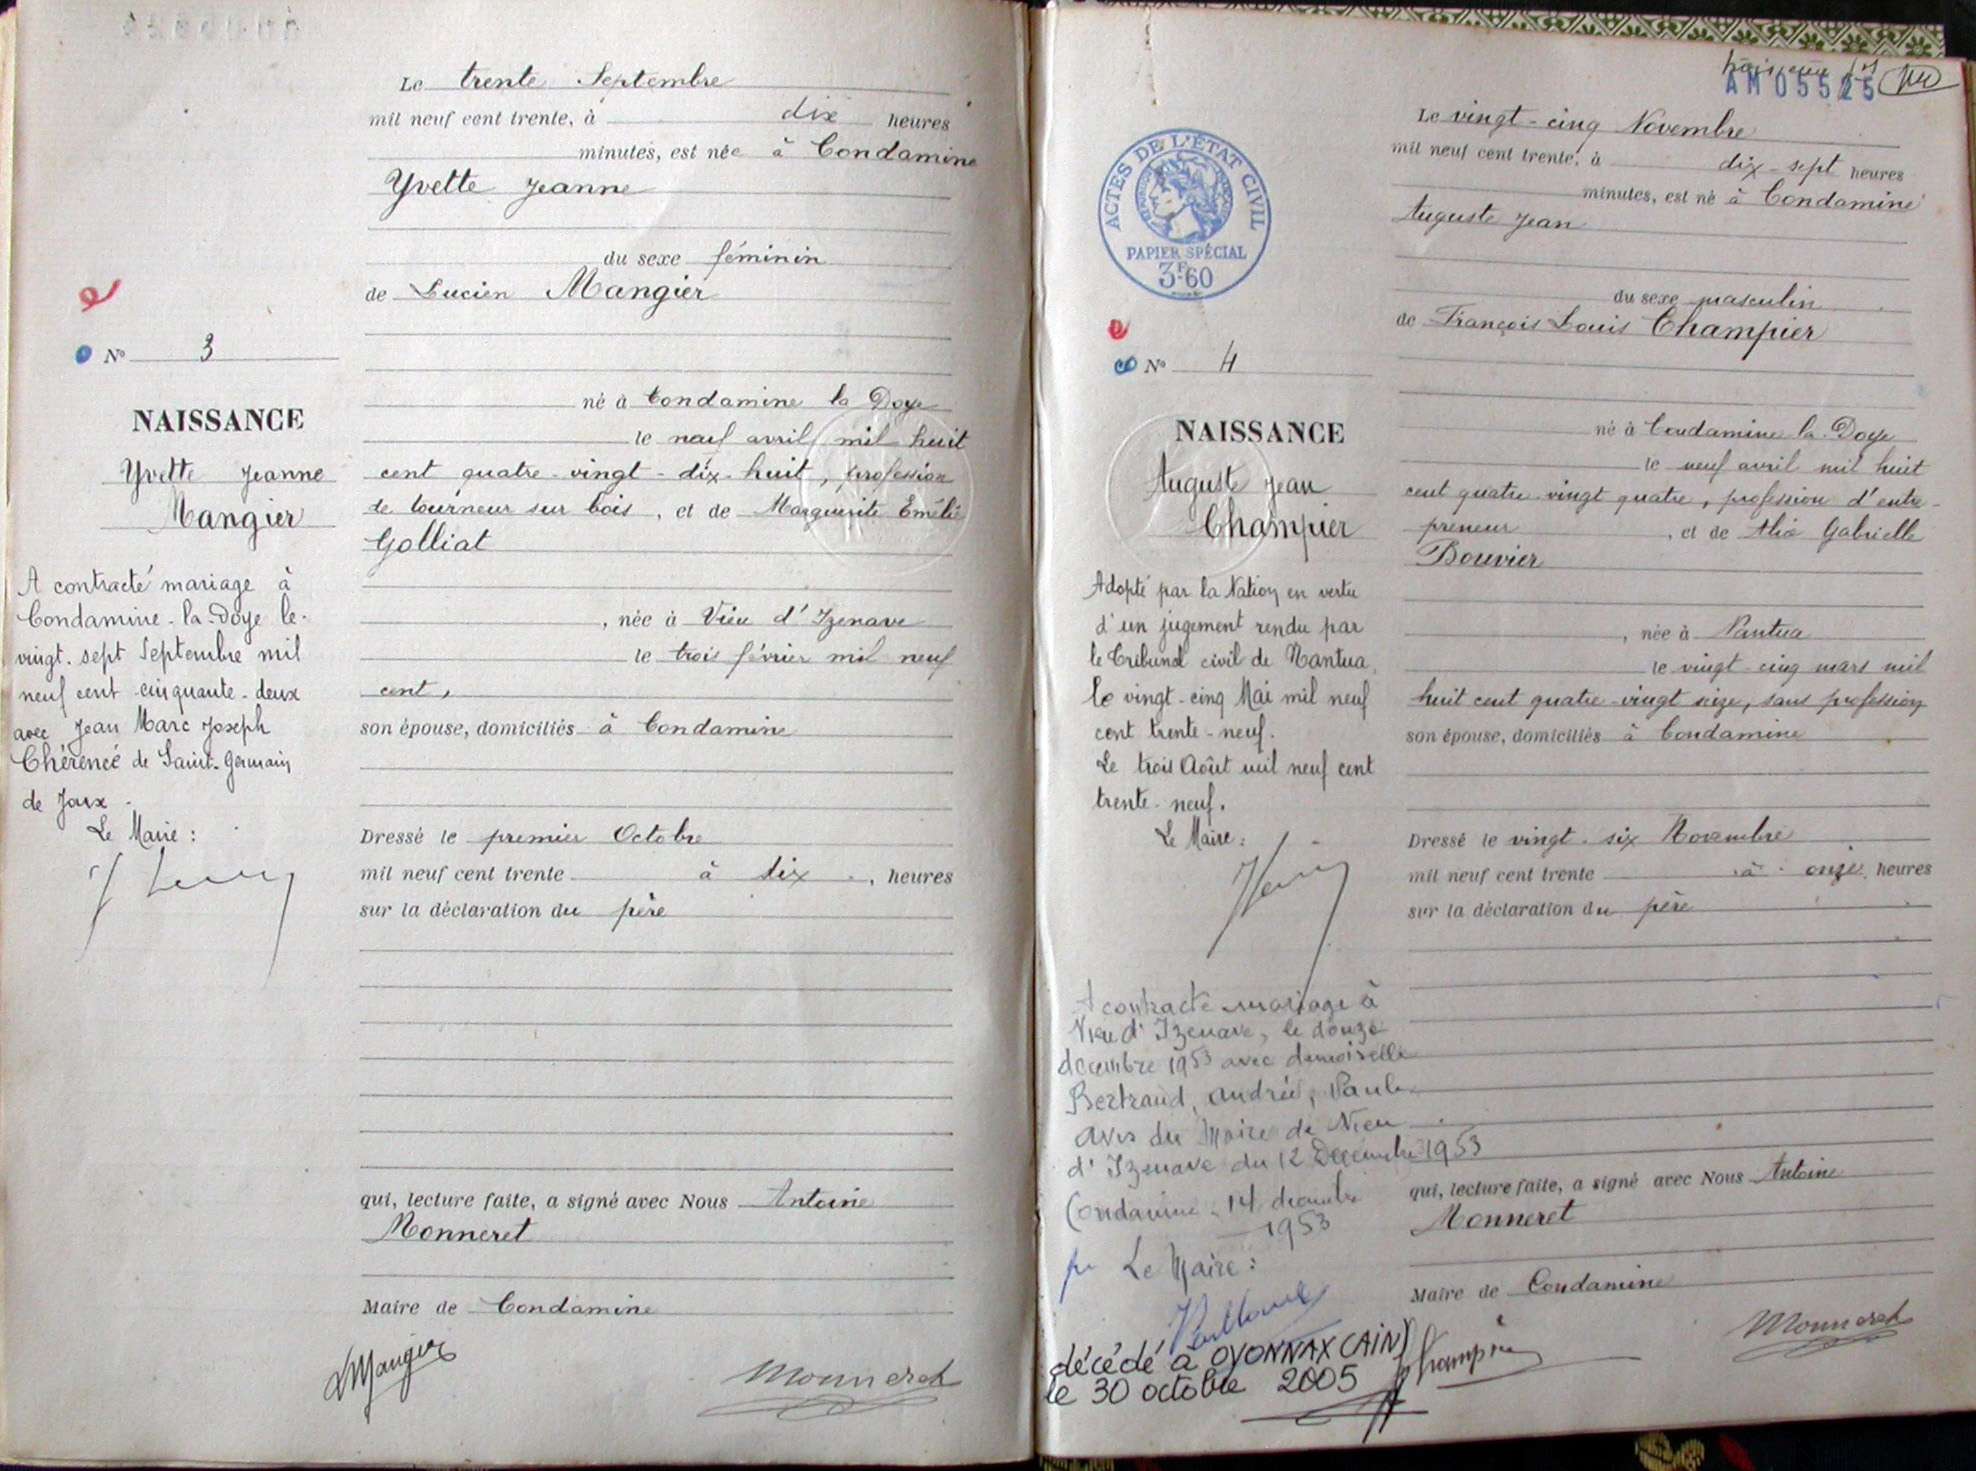 Le trente Septembre
mil neuf cent trente, à dix heures
minutes, est née à Condamine
Yvette Jeanne
du sexe féminin
de Lucien Mangier
N° 3
né à Condamine la Doye
le neuf avril mil huit
NAISSANCE
Yvette Jeanne
Mangier
cent quatre-vingt-dix-huit, profession
de tourneur sur bois, et de Marguerite Emélie
Golliat
A contracté mariage à
Condamine-la-Doye le
vingt-sept Septembre mil
neuf cent cinquante-deux
avec Jean Marc Joseph
Chérencé de Saint-Germain
de Joux.
Le Maire :
, née à Vieu d'Izenave
le trois février mil neuf
cent,
son épouse, domiciliés à Condamine
Dressé le premier Octobre
mil neuf cent trente à dix , heures
sur la déclaration du père
qui, lecture faite, a signé avec Nous Antoine
Monneret
Maire de Condamine
LMangier
Monneret
AM05525
Le vingt-cinq Novembre
mil neuf cent trente, à dix-sept heures
minutes, est né à Condamine
Auguste Jean
ACTES DE L'ÉTAT CIVIL
PAPIER SPÉCIAL
3F60
du sexe masculin
de François Louis Champier
N° 4
né à Condamine la Doye
le neuf avril mil huit
NAISSANCE
Auguste Jean
Champier
cent quatre-vingt quatre, profession d'entre-
preneur , et de Alix Gabrielle
Bouvier
Adopté par la Nation en vertu
d'un jugement rendu par
le Tribunal civil de Nantua,
le vingt-cinq Mai mil neuf
cent trente-neuf.
Le trois Août mil neuf cent
trente-neuf.
Le Maire :
, née à Nantua
le vingt-cinq mars mil
huit cent quatre-vingt seize, sans profession
son épouse, domiciliés à Condamine
Dressé le vingt-six Novembre
mil neuf cent trente à onze heures
sur la déclaration du père
A contracté mariage à
Vieu d'Izenave, le douze
décembre 1953 avec demoiselle
Bertrand, Andrée, Paule
avis du Maire de Vieu
d'Izenave du 12 Décembre 1953
Condamine, 14 décembre
1953
pr Le Maire :
qui, lecture faite, a signé avec Nous Antoine
Monneret
Maire de Condamine
Champier
Monneret
décédé à OYONNAX (AIN)
le 30 octobre 2005